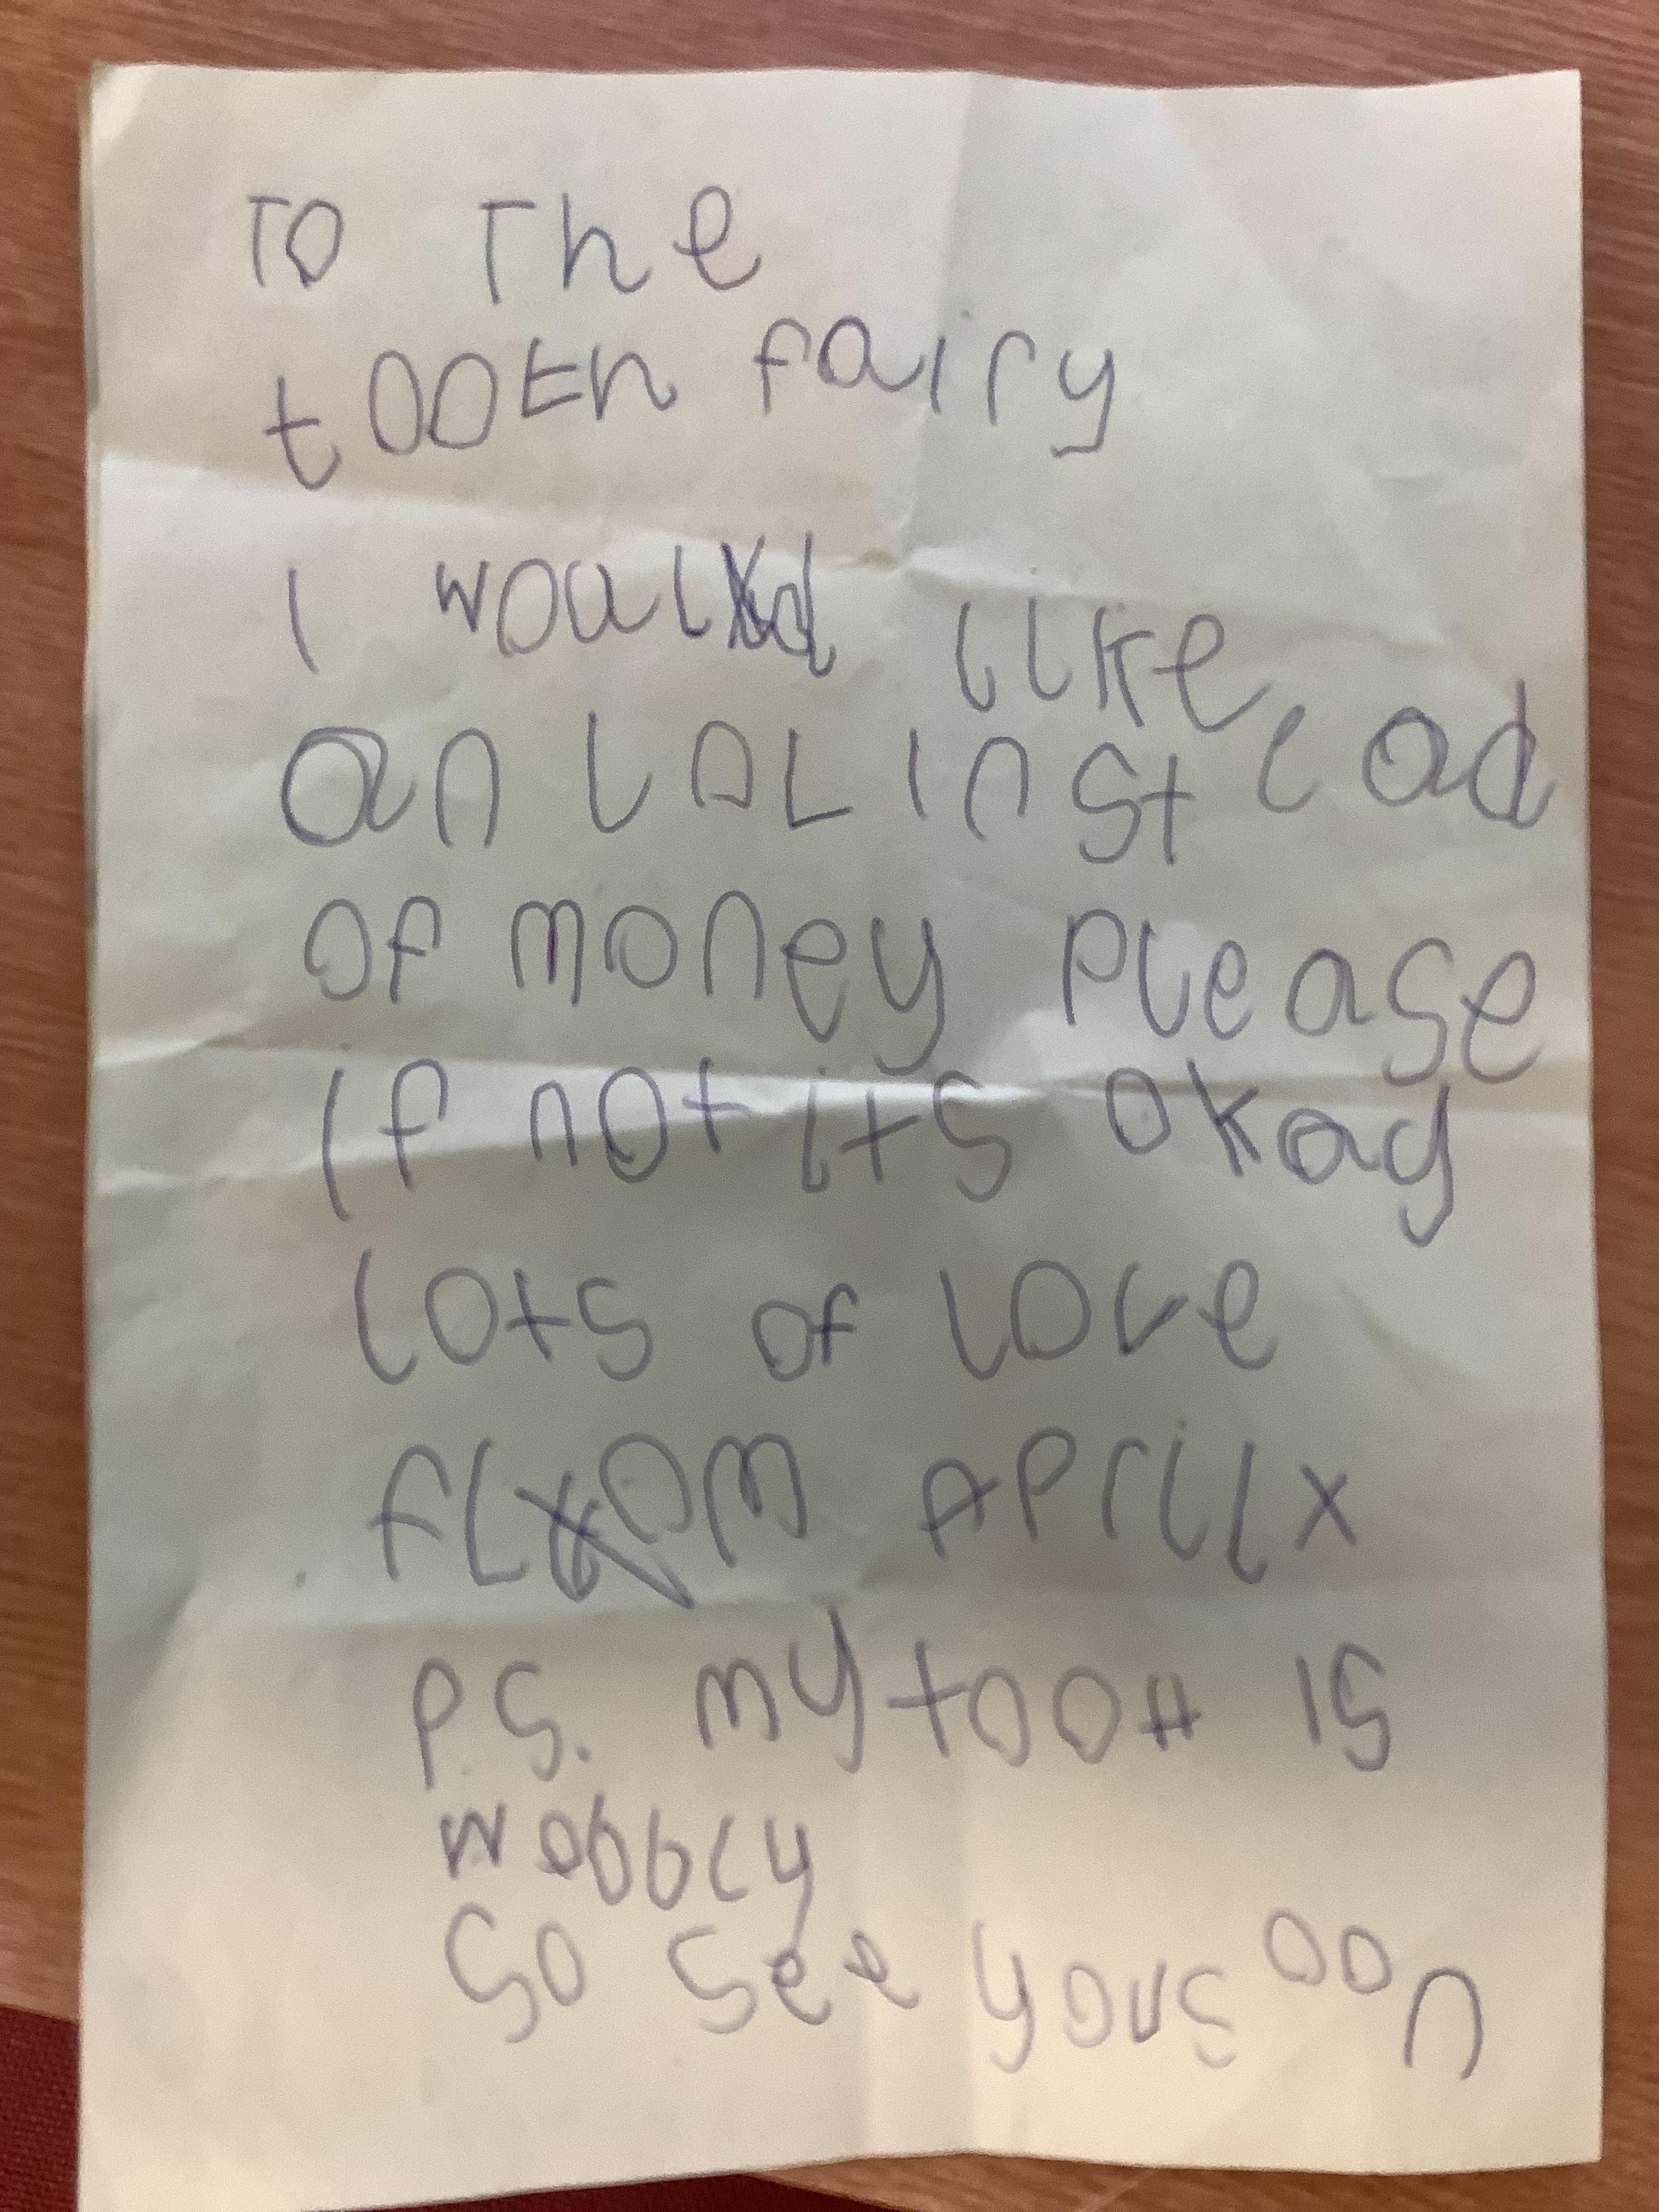 To The
tooth fairy
I would like
an LOL instead
of money please
if not its okay
lots of love
from Aprilx
P.S. my tooth is
wobbly
So see you soon